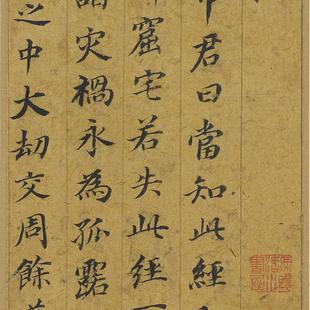 君曰當知此經
窟宅若失此經
災禍永為孤露
之中大劫交周餘